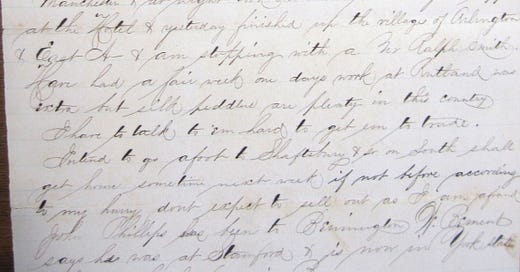 Manchester &
at the Hotel & yesterday finished up the village of Arlington
& East A & am stopping with a Mr Ralph Smith.
Have had a fair week one days work at Rutland was
extra but silk peddlers are plenty in this country
I have to talk to em hard to get em to trade.
Intend to go afoot to Shaftsbury & so on South shall
get home sometime next week if not before according
to my hurry dont expect to sell out as I am afraid
John Phillips has been to Bennington N. Bement
says he was at Stamford & is now in York state